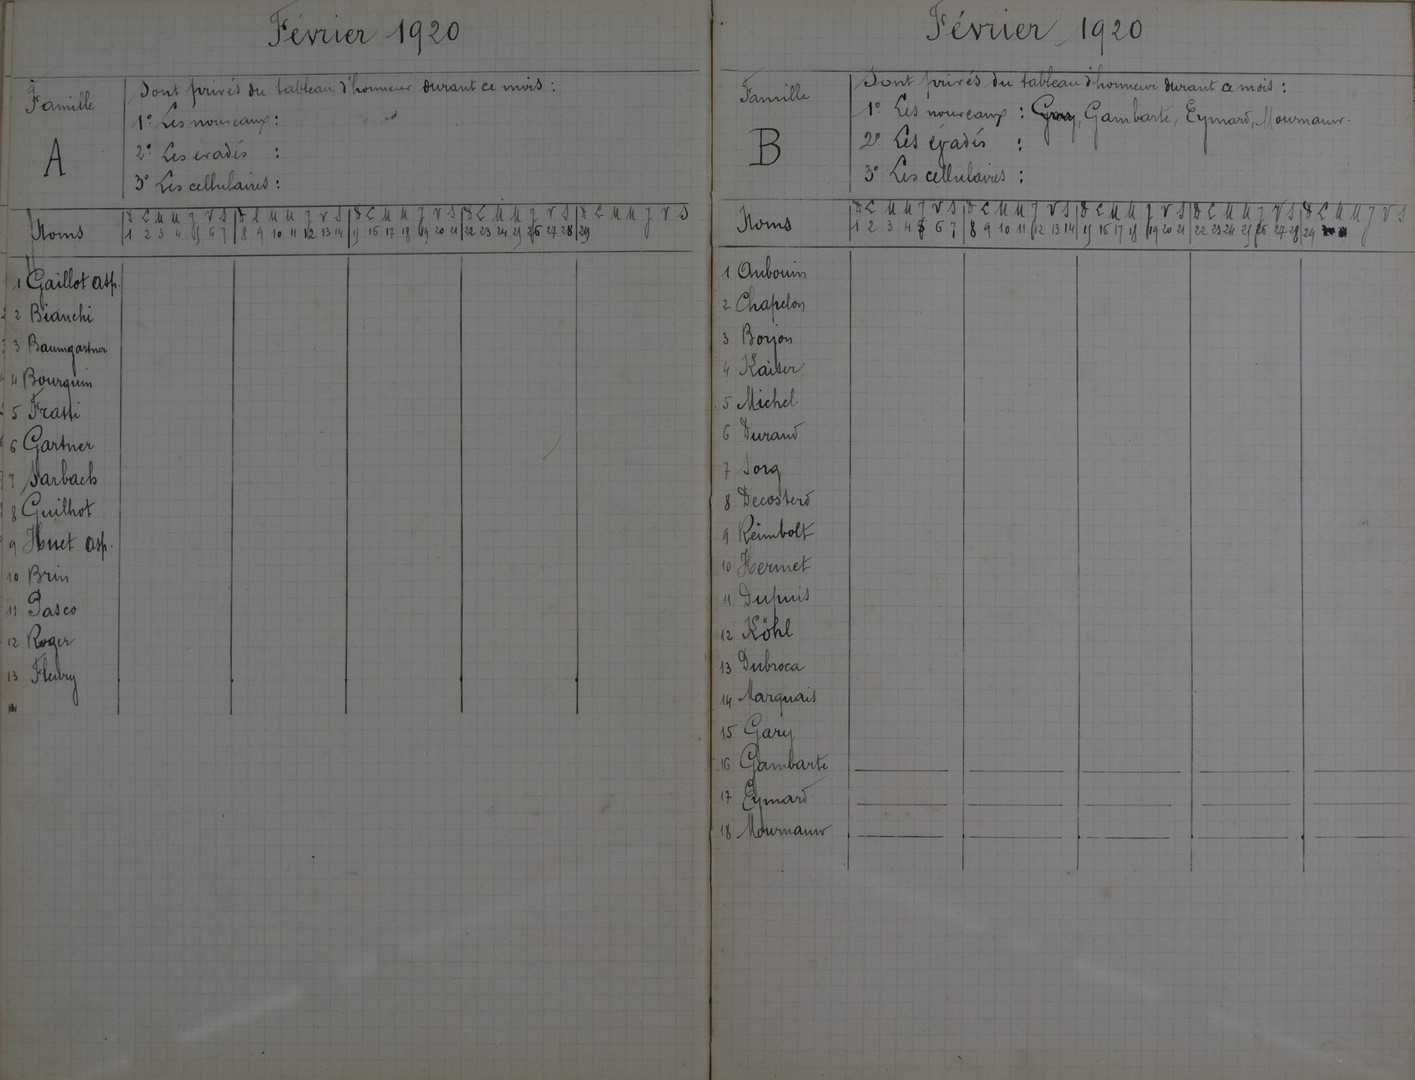 Février 1920
Famille
A
Sont privés du tableau d'honneur durant ce mois :
1° Les nouveaux :
2° Les évadés :
3° Les cellulaires :
Noms
D L M M J V S D L M M J V S D L M M J V S D L M M J V S D L M M J V S
1 2 3 4 5 6 7 8 9 10 11 12 13 14 15 16 17 18 19 20 21 22 23 24 25 26 27 28 29
1 Gaillot asp.
2 Bianchi
3 Baumgartner
4 Bourquin
5 Fratti
6 Gartner
7 Sarbach
8 Guilhot
9 Huet asp.
10 Brin
11 Pasco
12 Roger
13 Fleury
Février 1920
Famille
B
Sont privés du tableau d'honneur durant ce mois :
1° Les nouveaux : Gary, Gambarte, Eymard, Mournaur.
2° Les évadés :
3° Les cellulaires :
Noms
D L M M J V S D L M M J V S D L M M J V S D L M M J V S D L M M J V S
1 2 3 4 5 6 7 8 9 10 11 12 13 14 15 16 17 18 19 20 21 22 23 24 25 26 27 28 29
1 Aubouin
2 Chapelon
3 Borjon
4 Kaiser
5 Michel
6 Durand
7 Sorg
8 Decosterd
9 Reimbolt
10 Hermet
11 Dupuis
12 Köhl
13 Dubroca
14 Marquais
15 Gary
16 Gambarte
17 Eymard
18 Mournaur